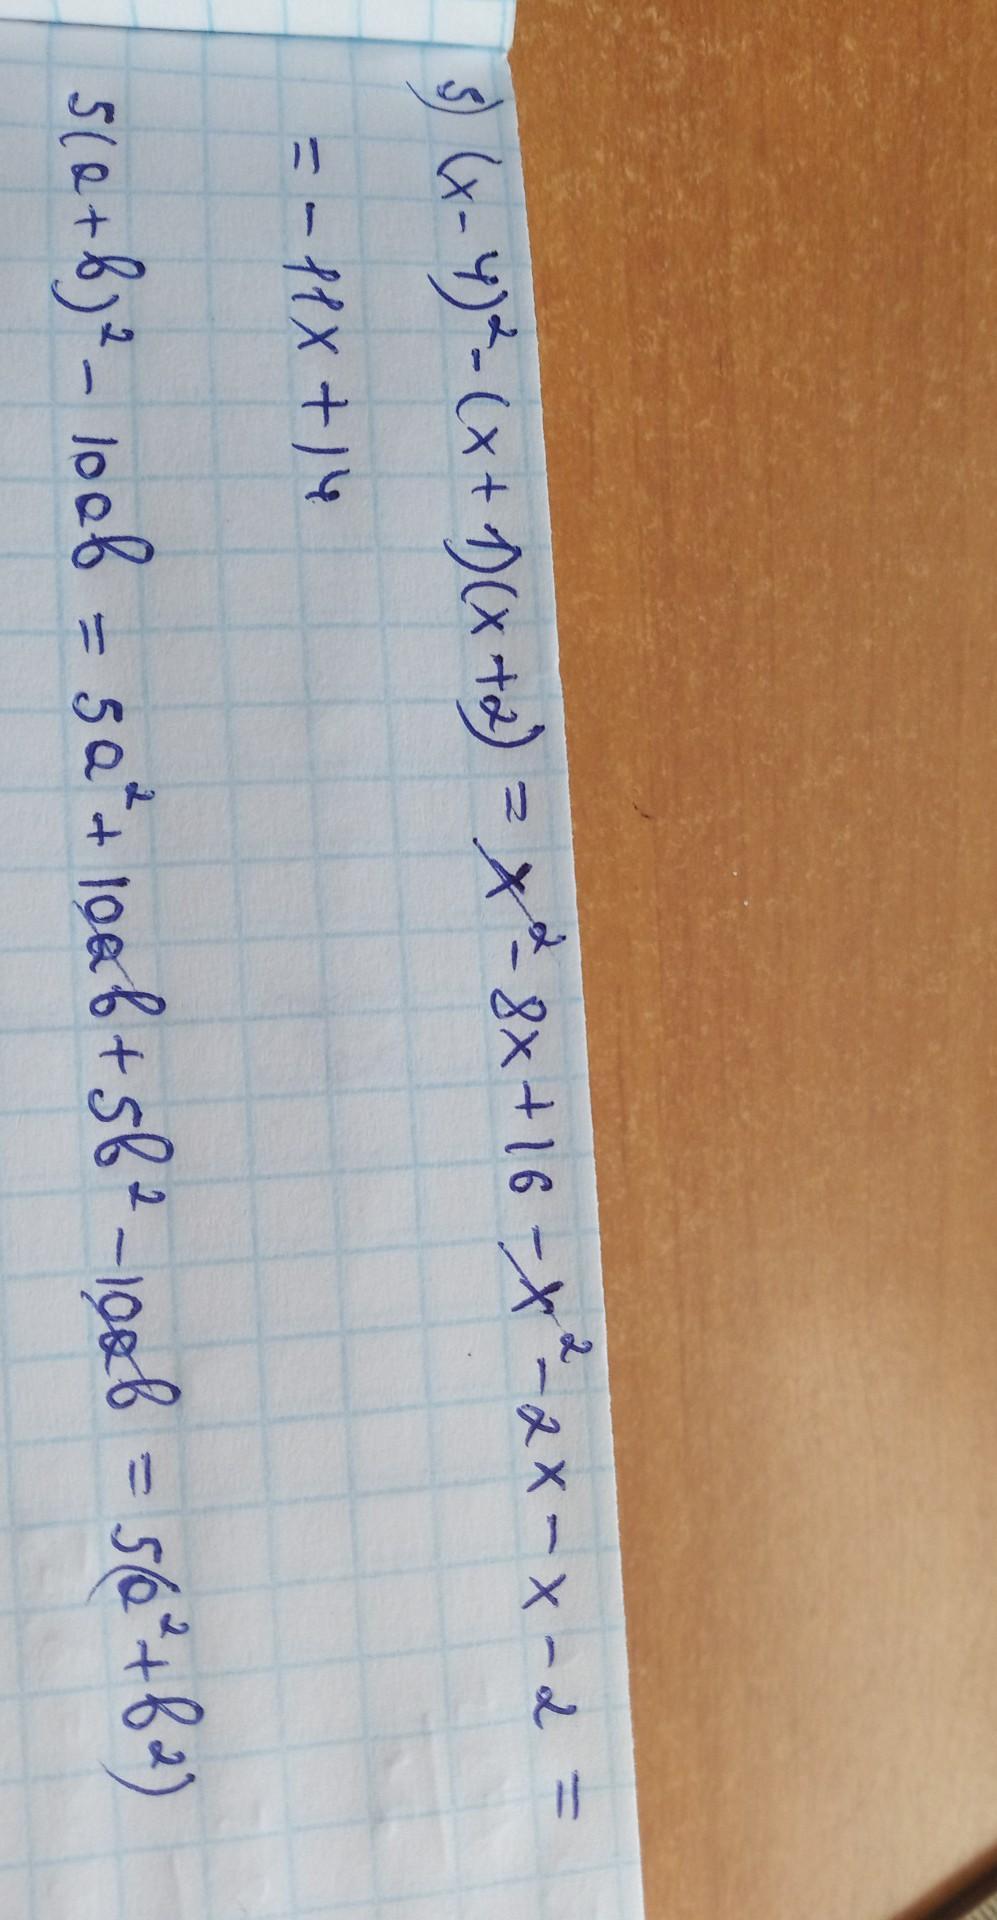 5) (x-4)²-(x+1)(x+2) = x²-8x+16-x²-2x-x-2 =
= -11x+14
5(a+b)²-10ab = 5a²+10ab+5b²-10ab = 5(a²+b²)